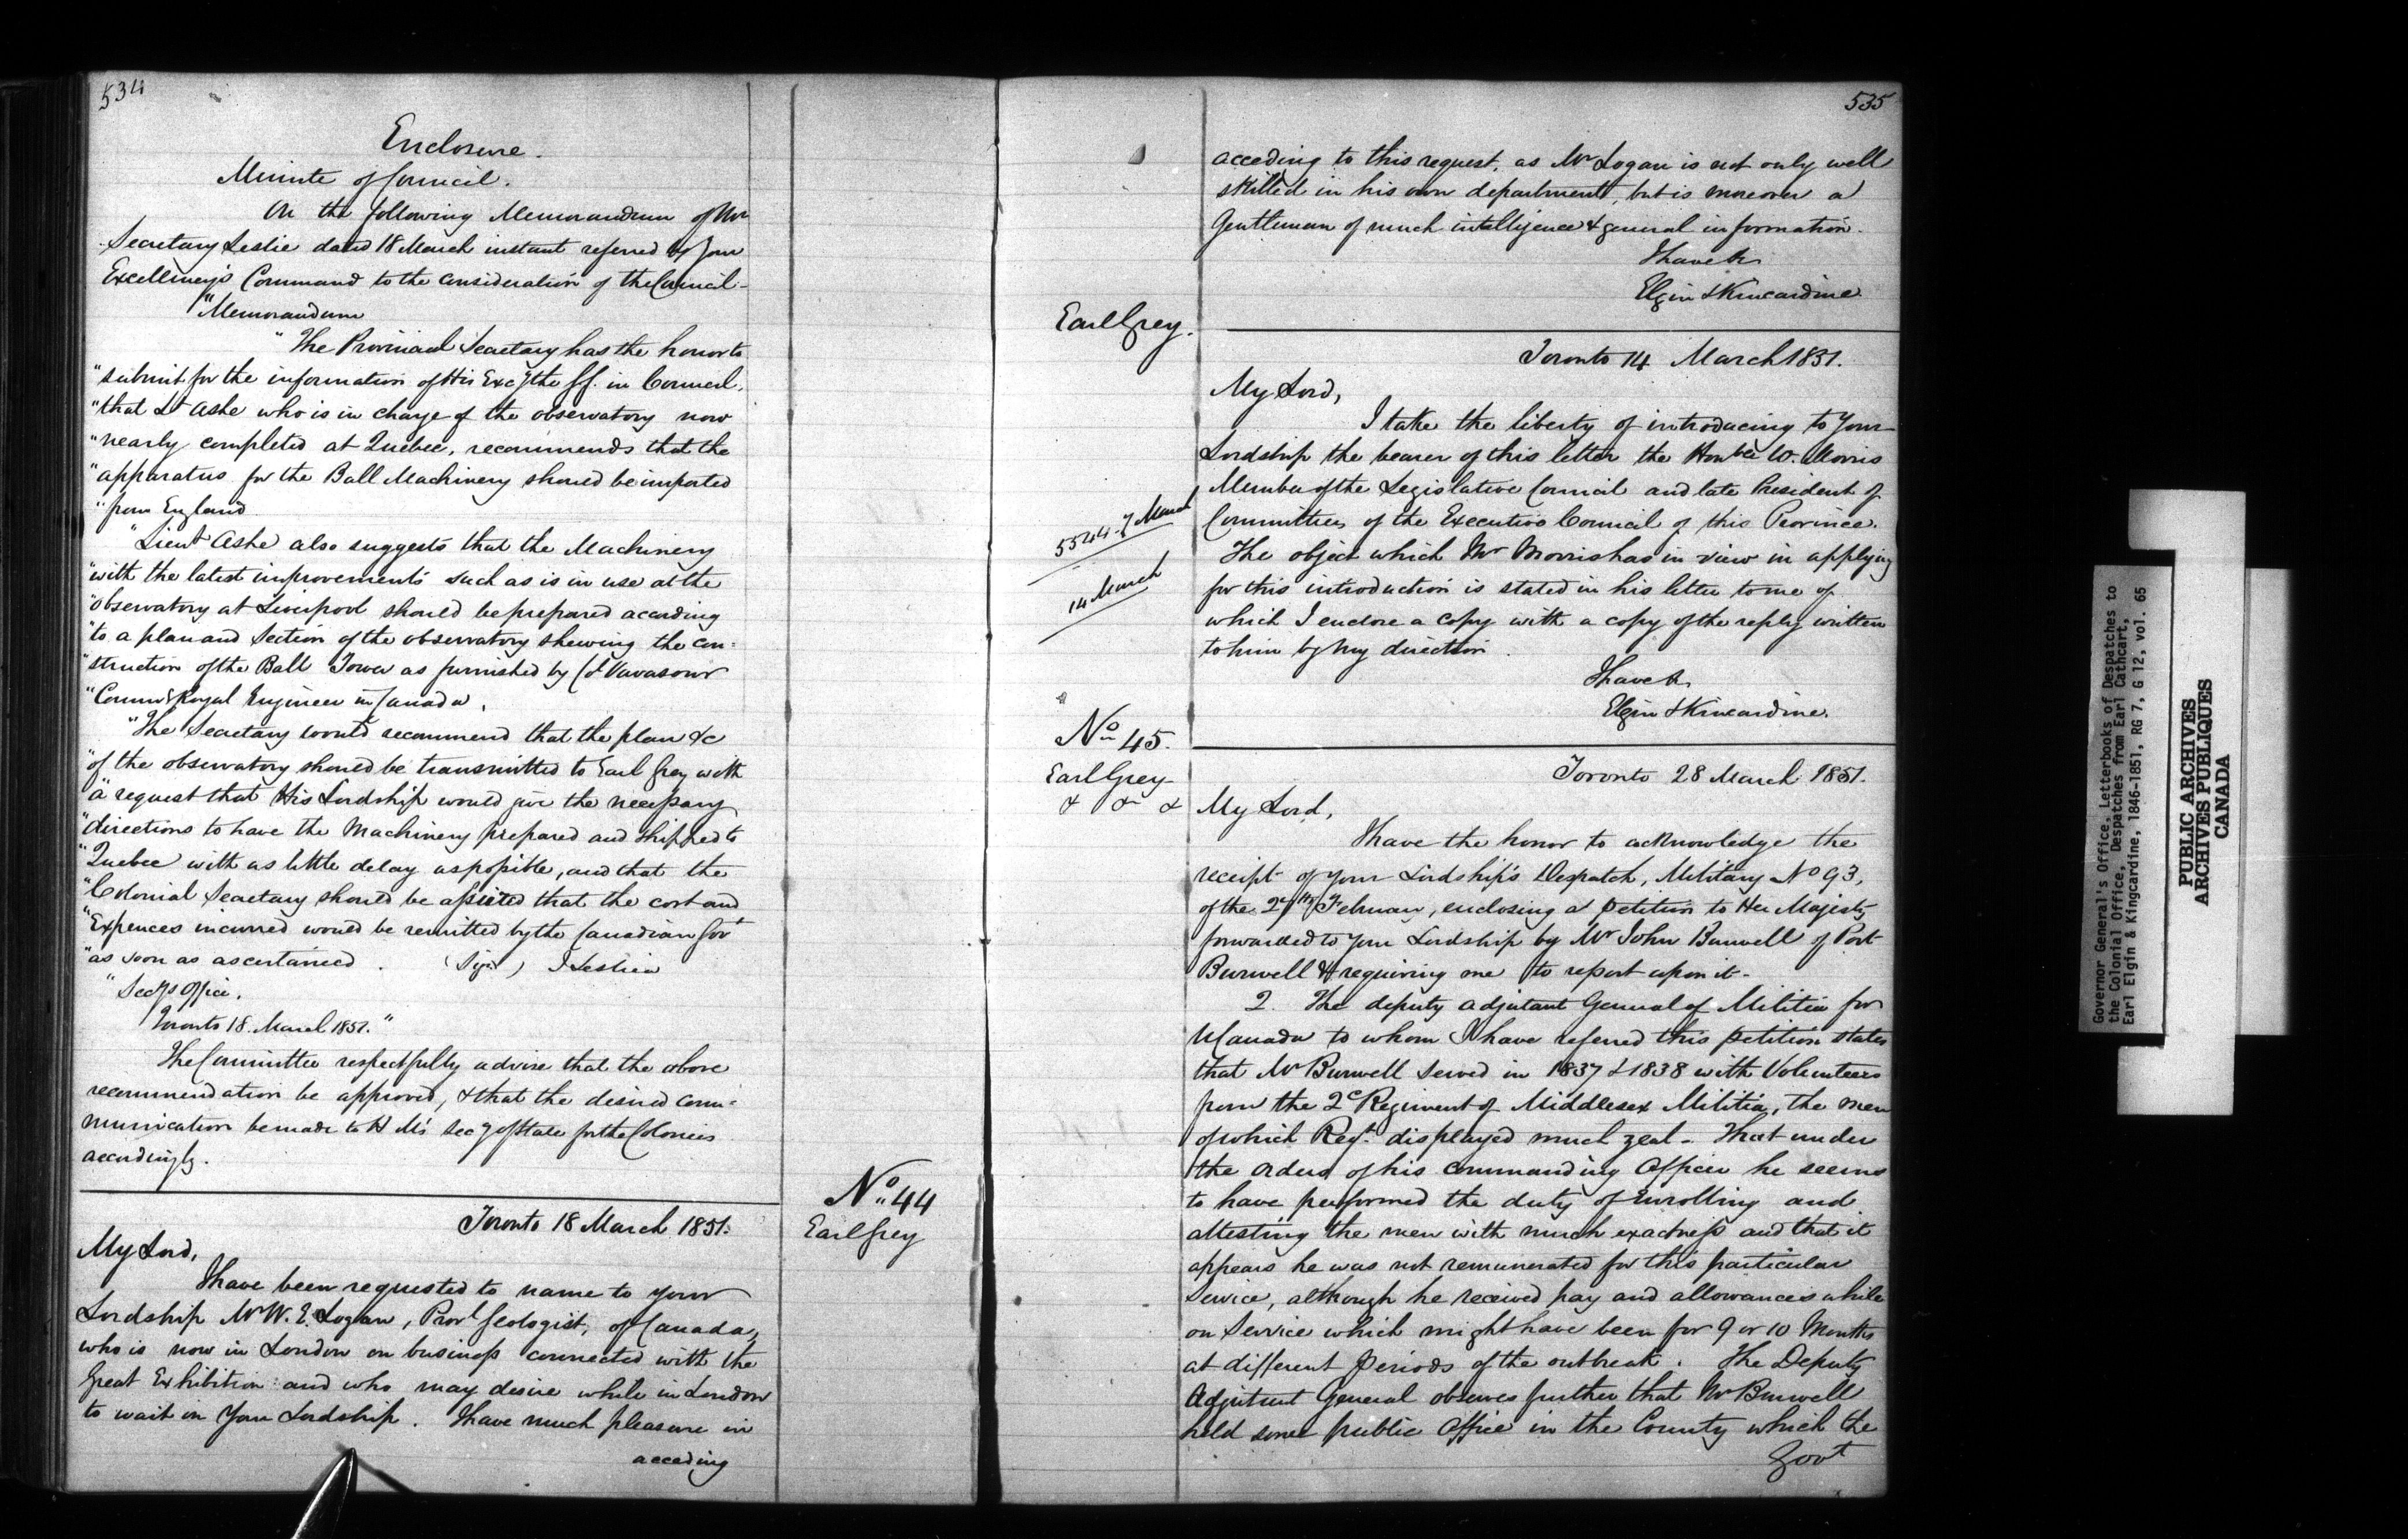 534
Enclosure.
Minute of Council.
On the following Memorandum of Mr
Secretary Leslie dated 18 March instant referred by Your
Excellency's Command to the consideration of the Council-
"Memorandum
"The Provincial Secretary has the honor to
"submit for the information of His Excy the GG. in Council,
"that Lt Ashe who is in charge of the observatory now
"nearly completed at Quebec, recommends that the
"apparatus for the Ball Machinery should be imported
"from England
"Lieut Ashe also suggests that the Machinery
"with the latest improvements such as is in use at the
"observatory at Liverpool should be prepared according
"to a plan and Section of the observatory shewing the con-
"struction of the Ball Tower as furnished by Col Vavasour
"Commg Royal Engineer in Canada.
"The Secretary would recommend that the plan &c
"of the observatory should be transmitted to Earl Grey with
"a request that His Lordship would give the necessary
"directions to have the Machinery prepared and shipped to
"Quebec with as little delay as possible, and that the
"Colonial Secretary should be assured that the cost and
"Expences incurred would be remitted by the Canadian Govt
"as soon as ascertained. (Sign) J Leslie
"Secys Office.
Toronto 18. March 1851."
The Committee respectfully advise that the above
recommendation be approved, & that the desired com-
munication be made to H M's Secy of State for the Colonies
accordingly.
No 44
Earl Grey
Toronto 18 March 1851.
My Lord,
I have been requested to name to your
Lordship Mr W. E. Logan, Provl Geologist, of Canada,
who is now in London on business connected with the
Great Exhibition and who may desire while in London
to wait on Your Lordship. I have much pleasure in
acceding
535
acceding to this request, as Mr Logan is not only well
skilled in his own department, but is moreover a
Gentleman of much intelligence & general information.
I have &c
Elgin & Kincardine
Earl Grey.
Toronto 14 March 1851.
My Lord,
I take the liberty of introducing to Your
Lordship the bearer of this letter the Honble W. Morris
Member of the Legislative Council and late President of
Committees of the Executive Council of this Province.
5524-7 March
14 March
The object which Mr Morris has in view in applying
for this introduction is stated in his letter to me of
which I enclose a copy with a copy of the reply written
to him by my direction.
I have &c
Elgin & Kincardine.
No 45.
Earl Grey
& & &
Toronto 28 March 1851.
My Lord,
I have the honor to acknowledge the
receipt of your Lordship's Despatch, Military No 93,
of the 27th February, enclosing a petition to Her Majesty
forwarded to Your Lordship by Mr John Burwell of Port
Burwell & requiring me to report upon it-
2. The deputy Adjutant General of Militia for
U Canada to whom I have referred this petition states
that Mr Burwell served in 1837 & 1838 with Volunteers
from the 2d Regiment of Middlesex Militia, the men
of which Regt. displayed much zeal - That under
the orders of his commanding Officer he seems
to have performed the duty of Enrolling and
attesting the men with much exactness and that it
appears he was not remunerated for this particular
Service, although he received pay and allowances while
on Service which might have been for 9 or 10 Months
at different periods of the outbreak. The Deputy
Adjutant General observes further that Mr Burwell
held some public Office in the County which the
Govt
Governor General's Office, Letterbooks of Despatches to
the Colonial Office, Despatches from Earl Cathcart,
Earl Elgin & Kingcardine, 1846-1851, RG 7, G 12, vol. 65
PUBLIC ARCHIVES
ARCHIVES PUBLIQUES
CANADA